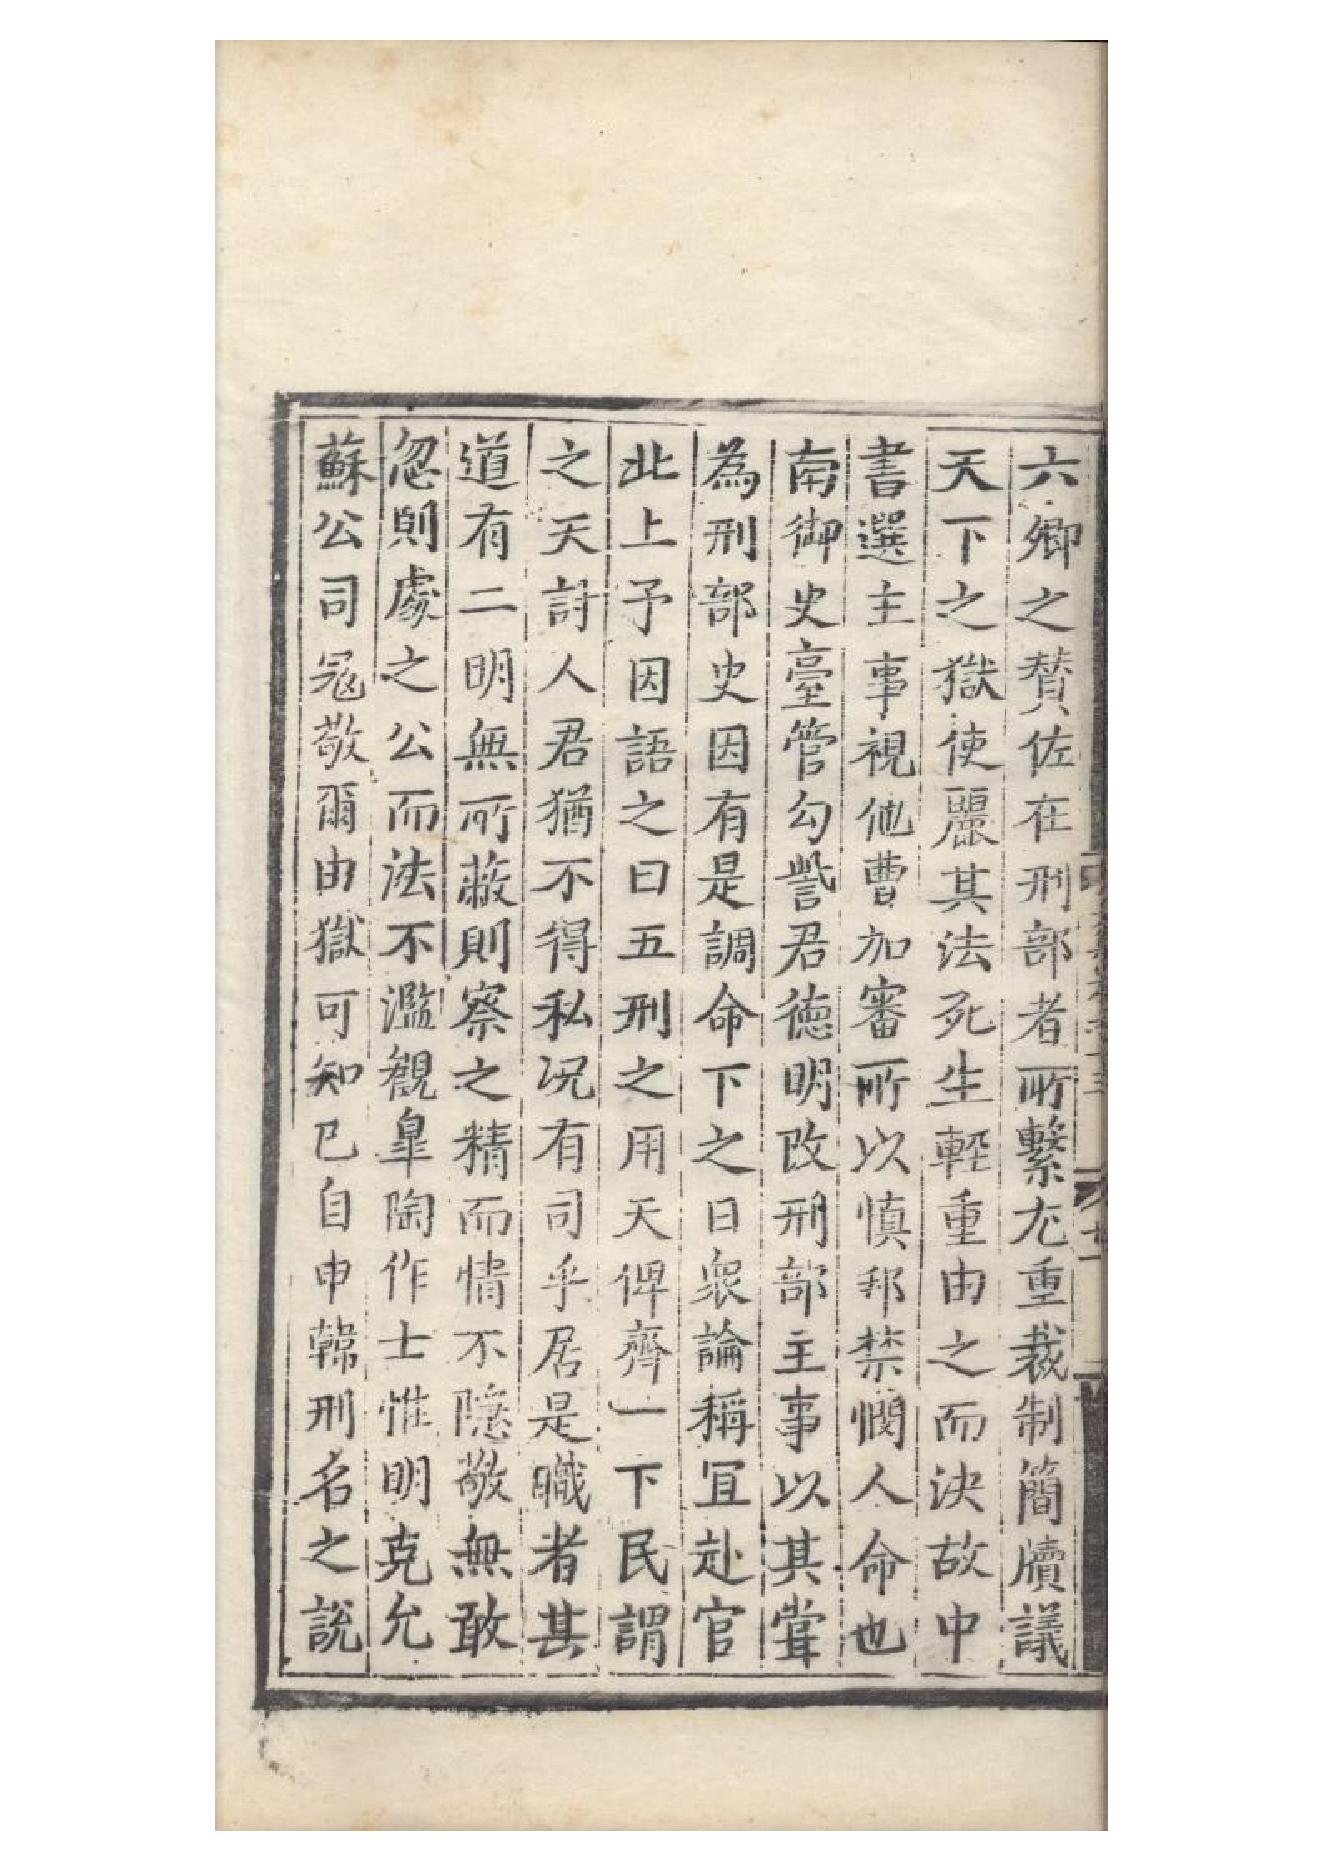 六卿之賛佐在刑部者所繫尤重裁制簡牘議
天下之獄使麗其法死生輕重由之而決故中
書選主事視他曹加審所以慎邦禁憫人命也
南御史臺管勾訾君德明改刑部主事以其甞
為刑部史因有是調命下之日衆論稱冝赴官
北上予因語之曰五刑之用天俾齊一下民謂
之天討人君猶不得私况有司乎居是職者其
道有二明無所蔽則察之精而情不隱敬無敢
忽則處之公而法不濫觀臯陶作士惟明克允
蘇公司冦敬爾由獄可知已自申韓刑名之說